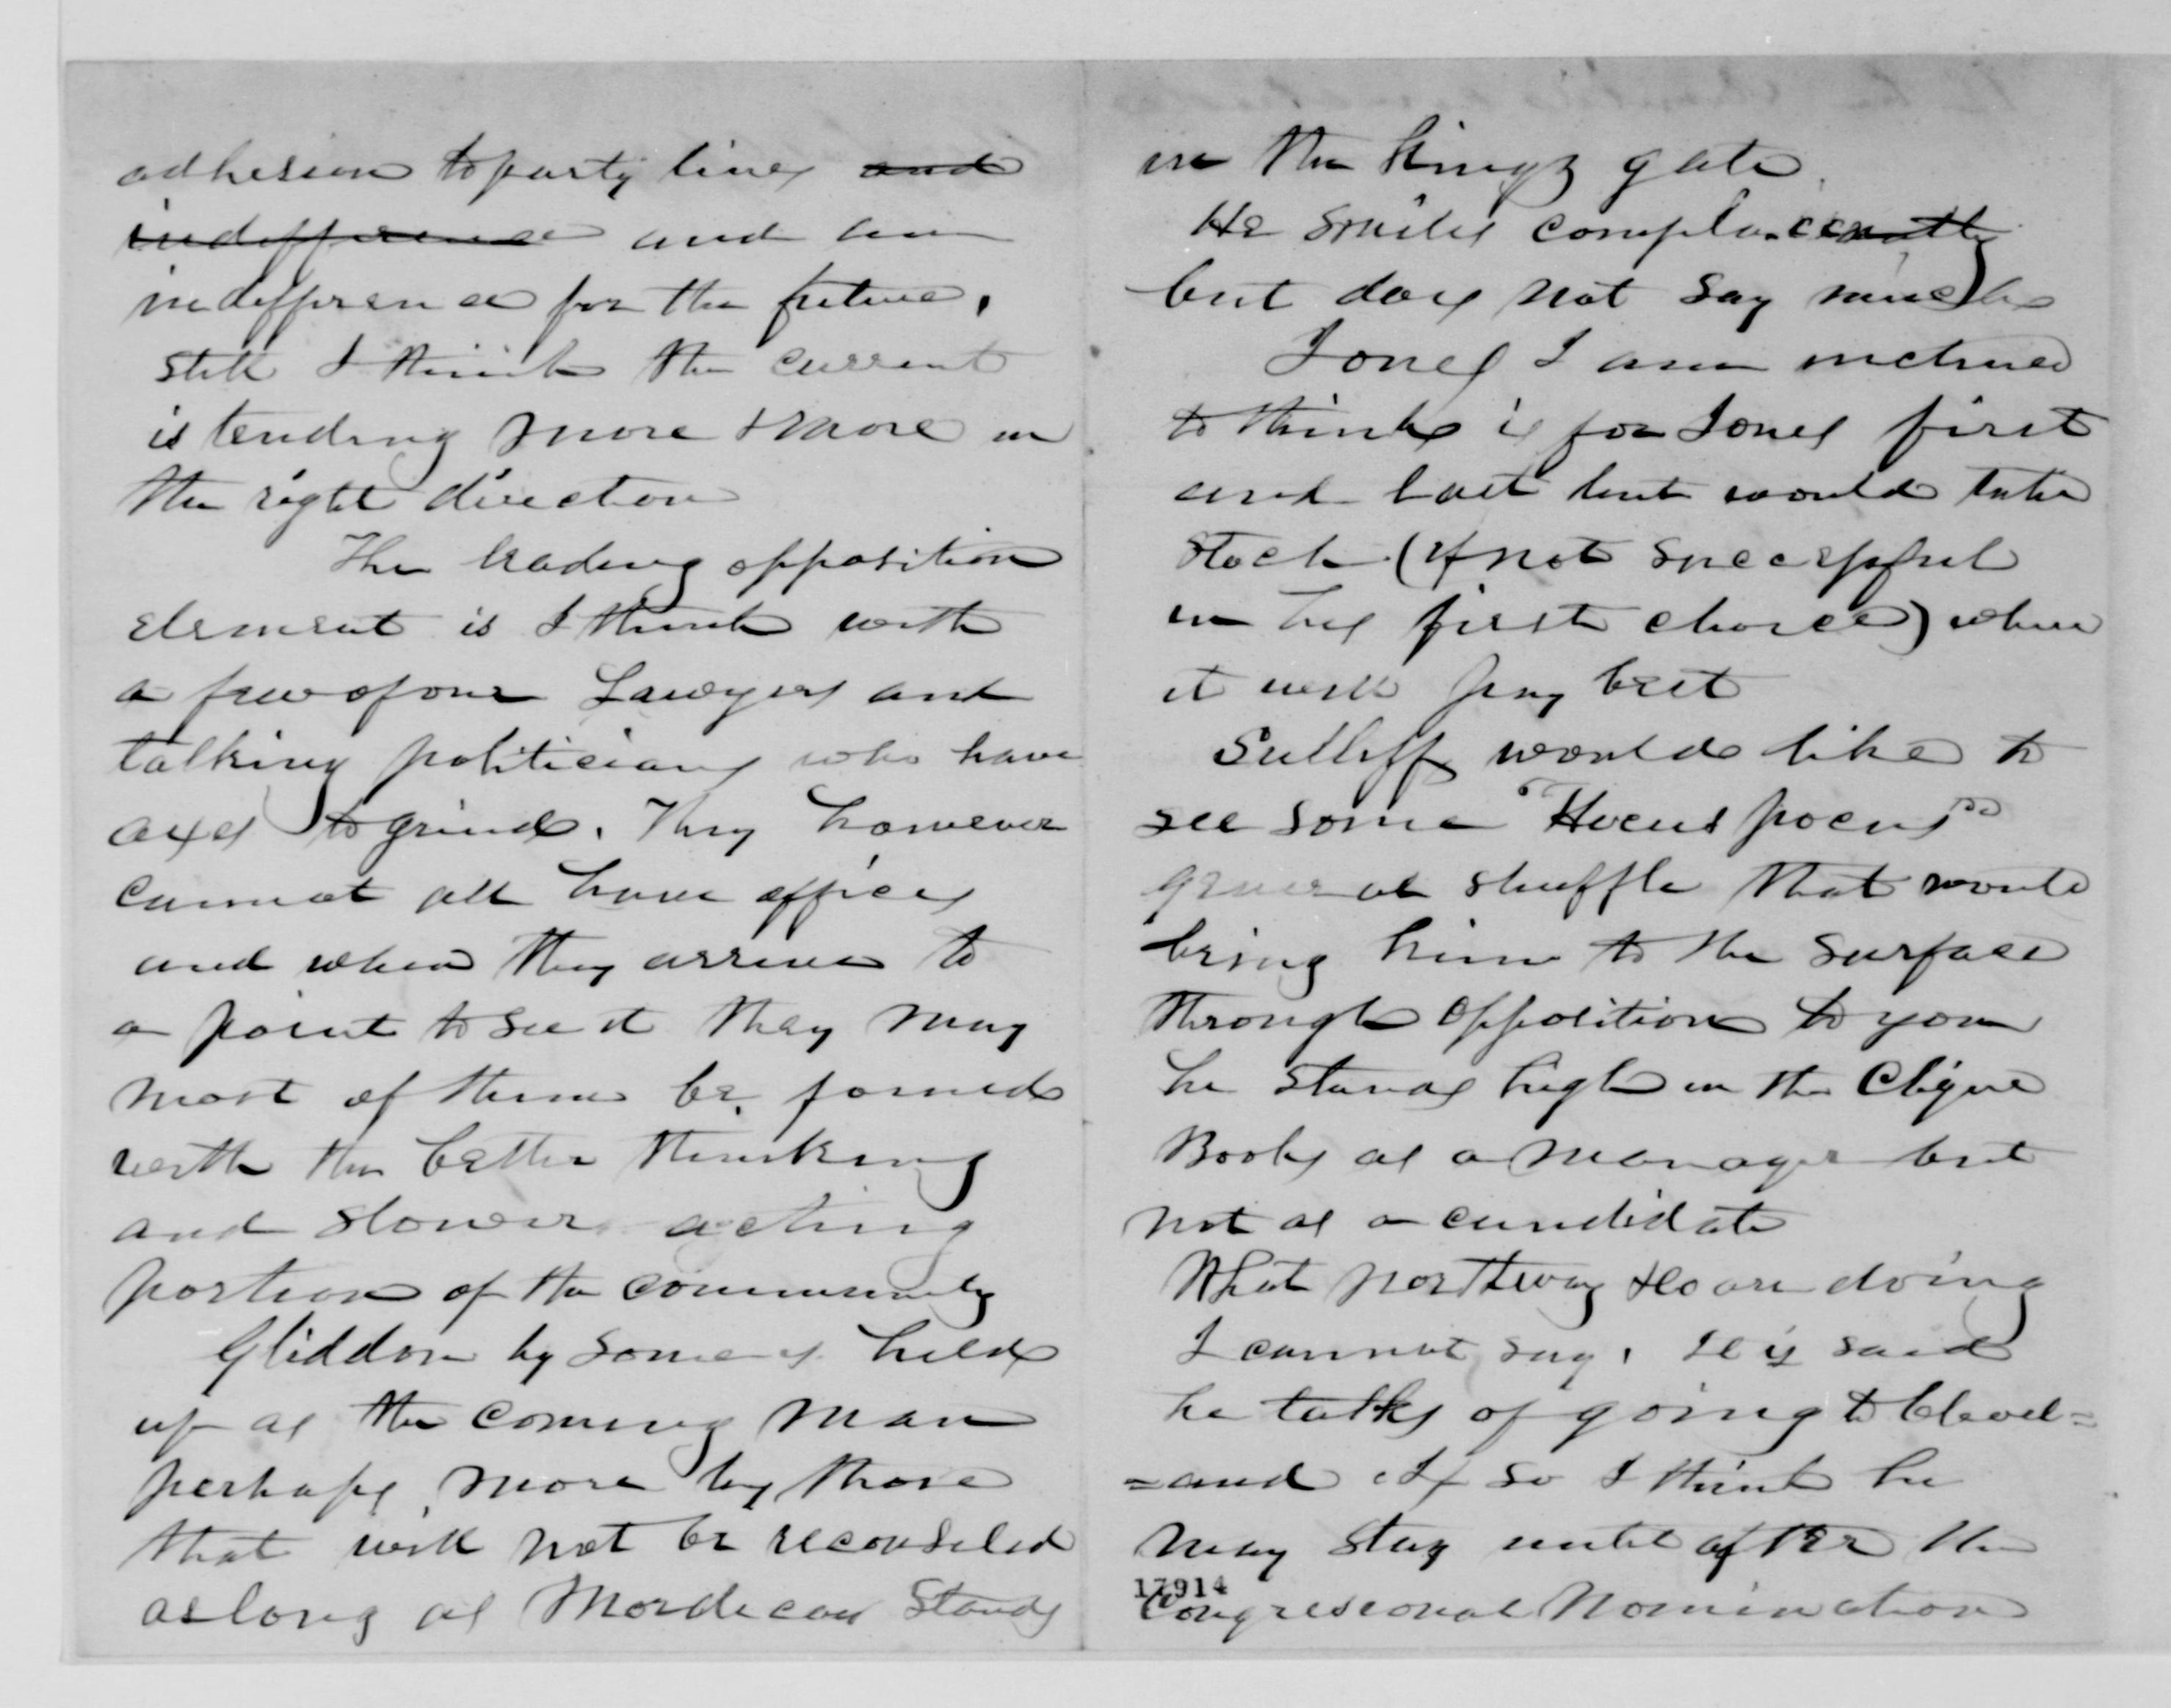 adhesion to party lines and
indifference and an
indifference for the future,
still I think the current
is tending more & more in
the right direction
The leading opposition
element is I think with
a few of our Lawyers and
talking politicians who have
axes to grind. They however
cannot all have offices
and when they arrive to
a point to see it they may
most of them be found
with the better thinking
and slower acting
portion of the community
Gliddon by some is held
up as the coming man
perhaps more by those
that will not be reconsiled
as long as Mordecai Stands
in the Kings gate.
He smiles complacently
but does not say much
Jones I am inclined
to think is for Jones first
and last but would take
stock (if not successful
in his first choice) where
it will pay best
Sutliff would like to
see some "Hocus pocus"
general shuffle that would
bring him to the surface
through opposition to you
he stands high in the Clique
Books as a manager but
not as a candidate
What Northway & Co are doing
I cannot say. It is said
he talks of going to Clevel=
=and if so I think he
may stay until after the
Congressional Nomination
17914